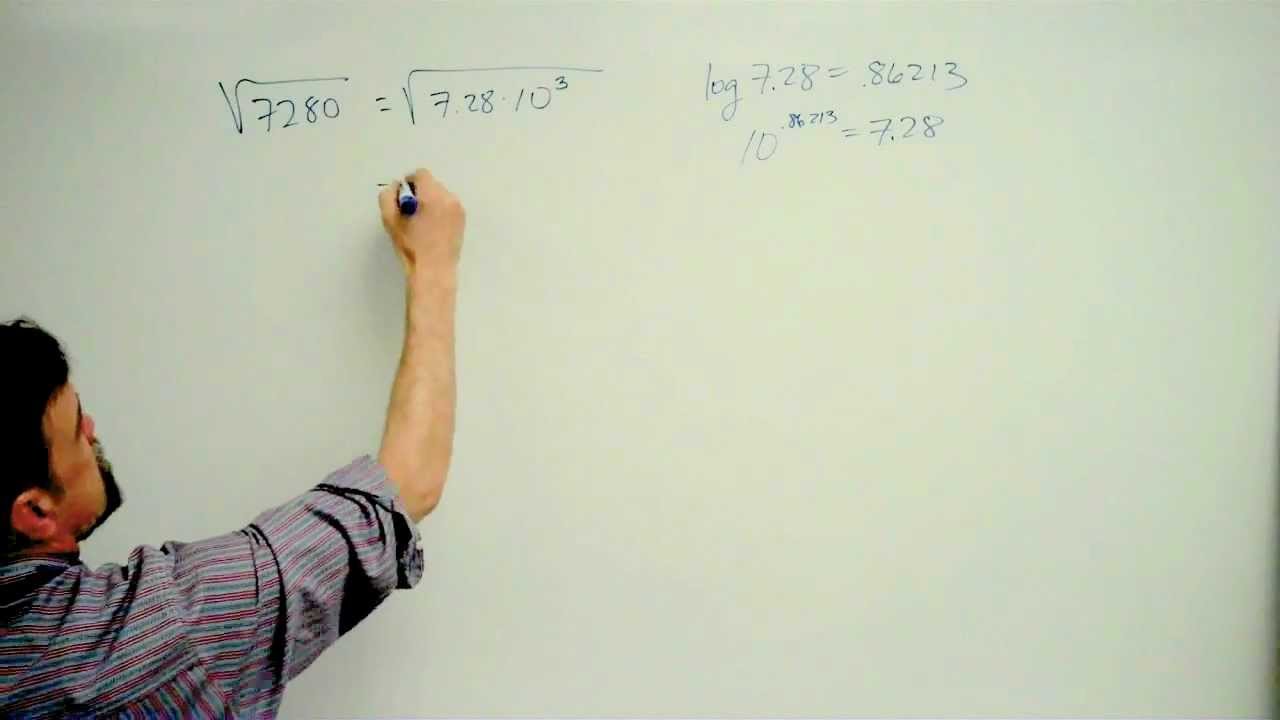 √7280 = √7.28·10³
log 7.28 = .86213
10^.86213 = 7.28